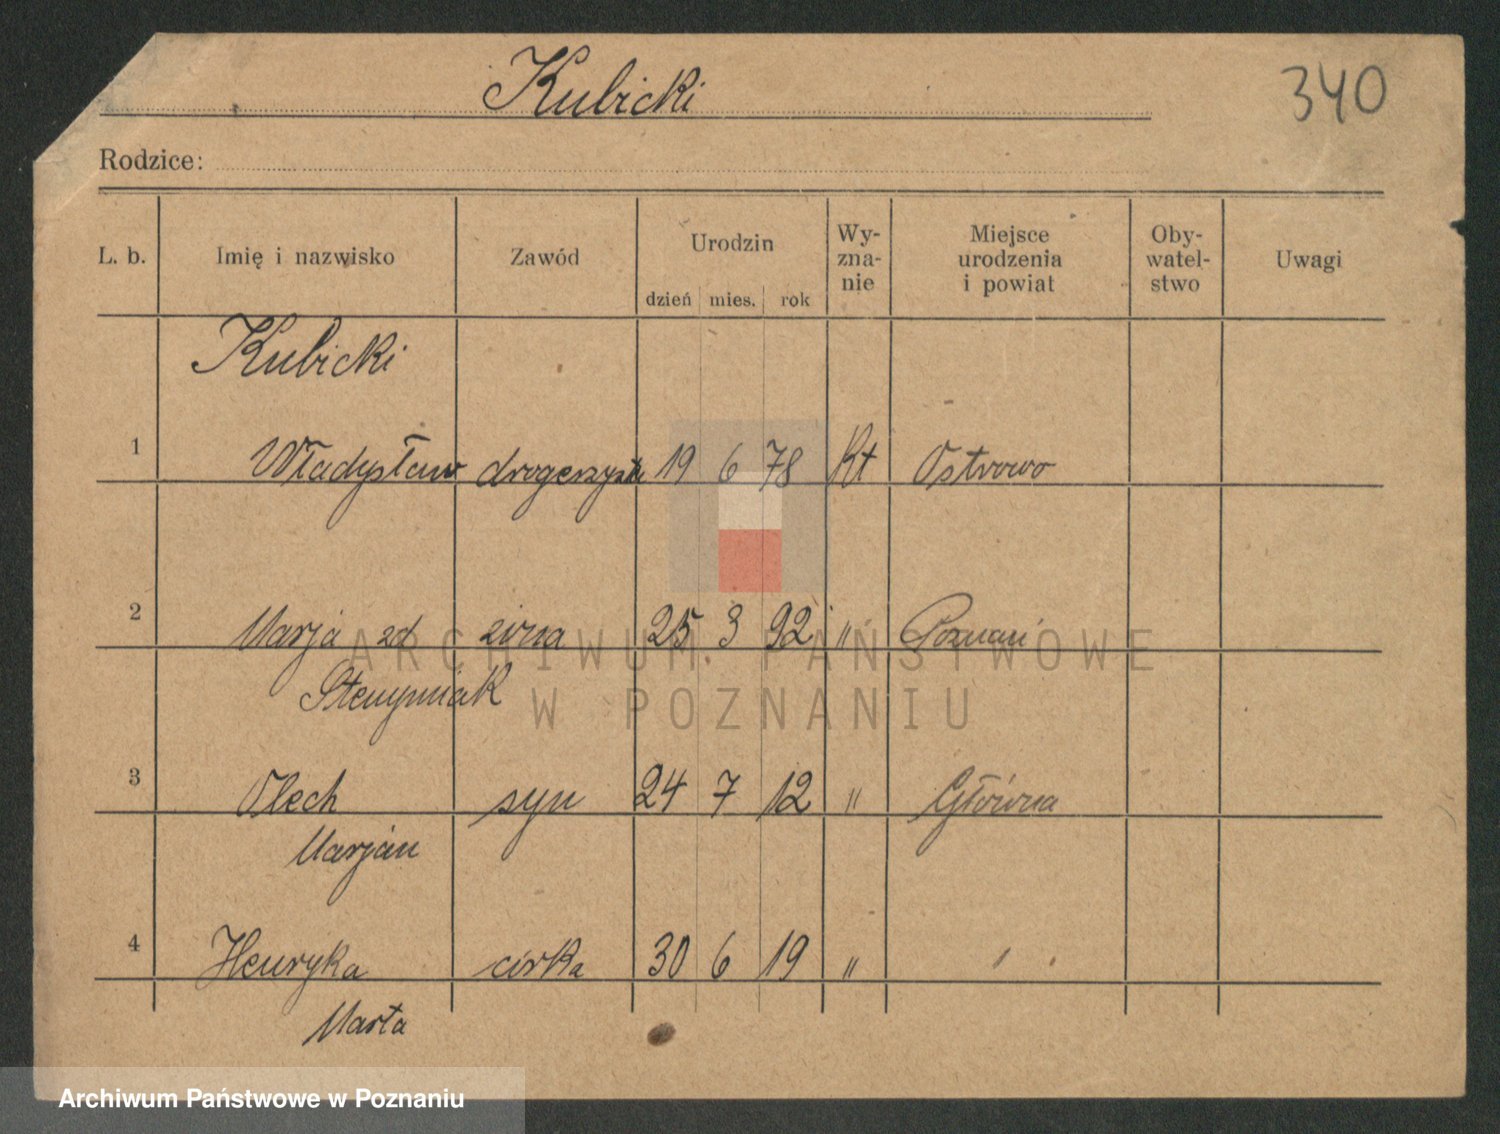 Kubicki
340
Rodzice:
L. b. Imię i nazwisko Zawód Urodzin dzień mies. rok Wy-zna-nie Miejsce urodzenia i powiat Oby-watel-stwo Uwagi
Kubicki
1 Władysław drogerzysta 19 6 78 Kt Ostrowo
2 Marja zd żona 25 3 92 " Poznań
3 Olech syn 24 7 12 " Główna
Marjan
4 Henryka córka 30 6 19 " "
Marta
ARCHIWUM PAŃSTWOWE
W POZNANIU
Archiwum Państwowe w Poznaniu